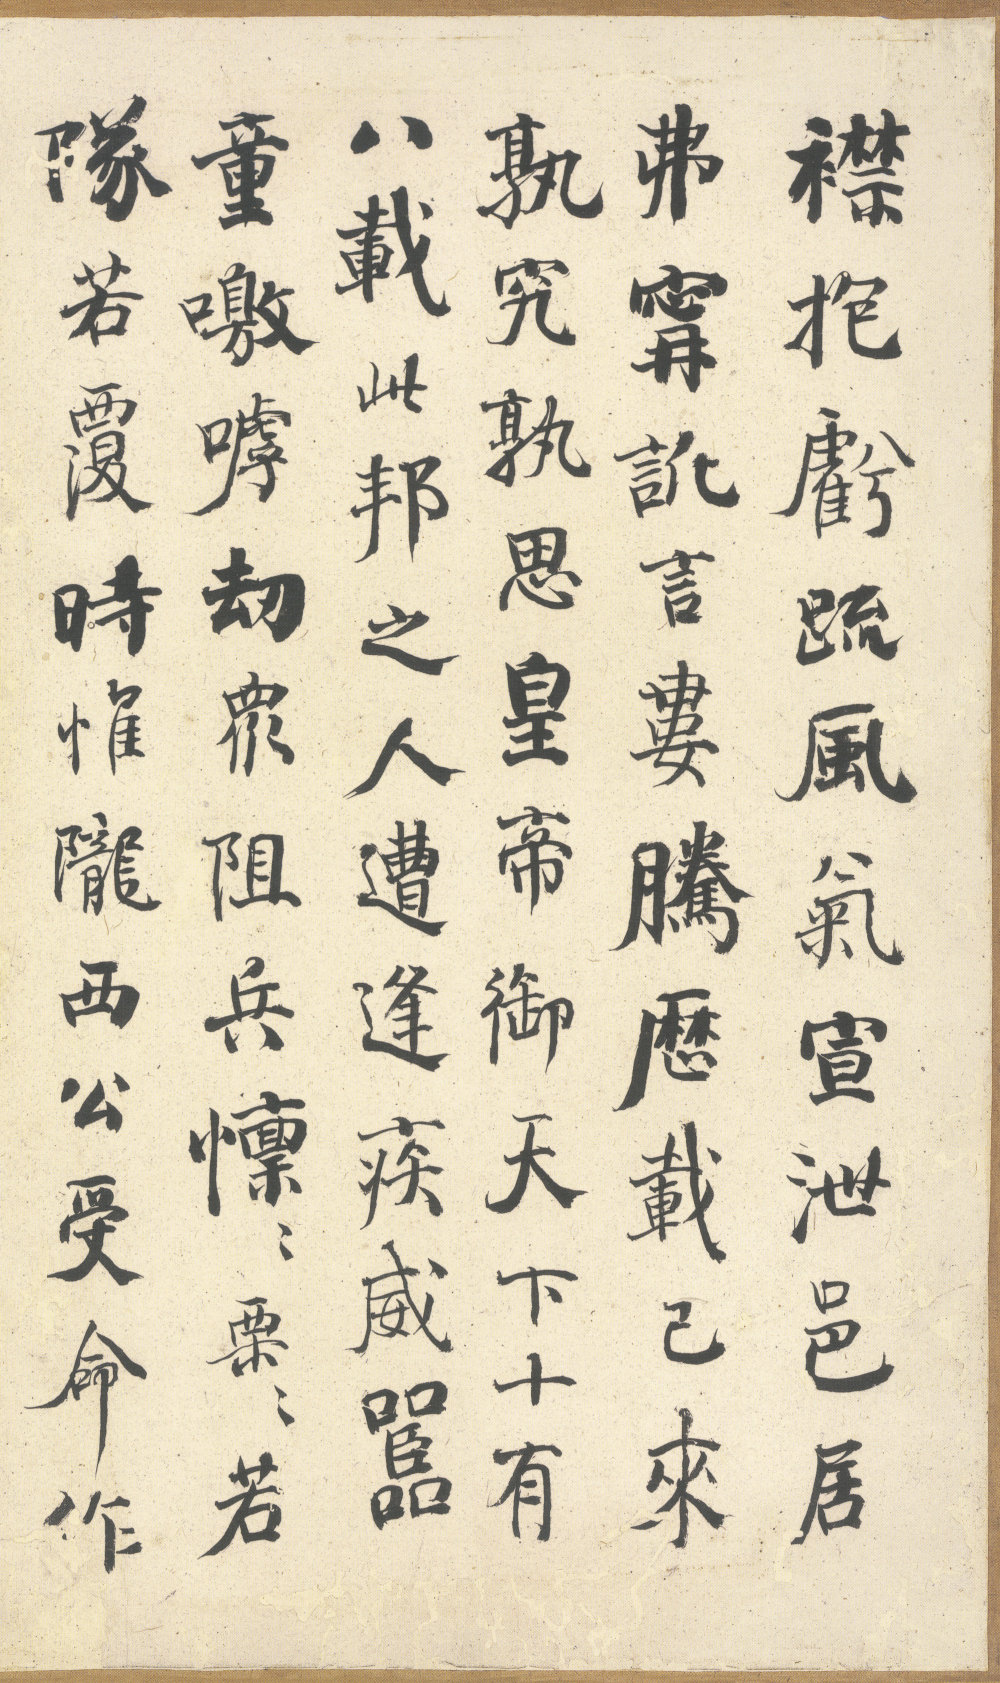 襟抱虧疏風氣宣泄邑居
弗甯訛言婁騰歷載已來
孰究孰思皇帝御天下十有
八載此邦之人遭逢疾威嚚
童噭嘑劫眾阻兵懍〻栗〻若
隊若覆時惟隴西公受命作